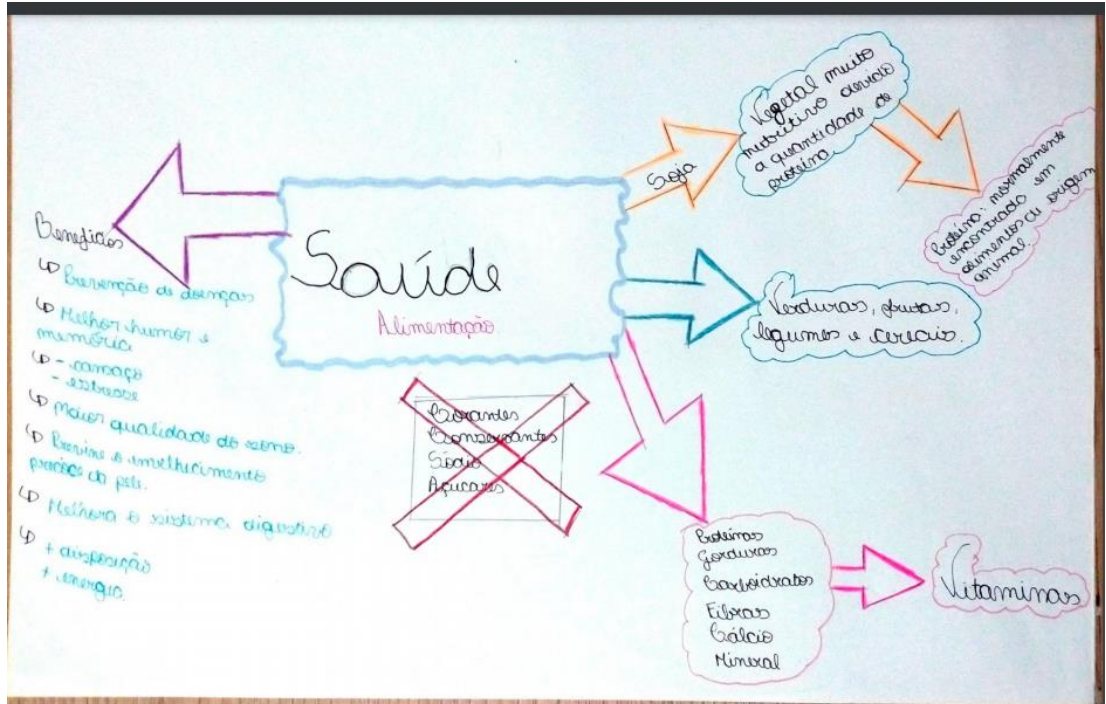 Saúde
Alimentação
Benefícios
↳ Prevenção de doenças
↳ Melhor humor e
memória
↳ - cansaço
- estresse
↳ Maior qualidade do sono.
↳ Previne o envelhecimento
precoce da pele.
↳ Melhora o sistema digestivo
↳ + disposição
+ energia.
Soja
Vegetal muito
nutritivo devido
a quantidade de
proteína
Proteína: normalmente
encontrado em
alimentos cu origem
animal.
Verduras, frutas,
legumes e cereais.
Corantes
Conservantes
Sódio
Açucares
Proteínas
Gorduras
Carboidratos
Fibras
Cálcio
Mineral
Vitaminas